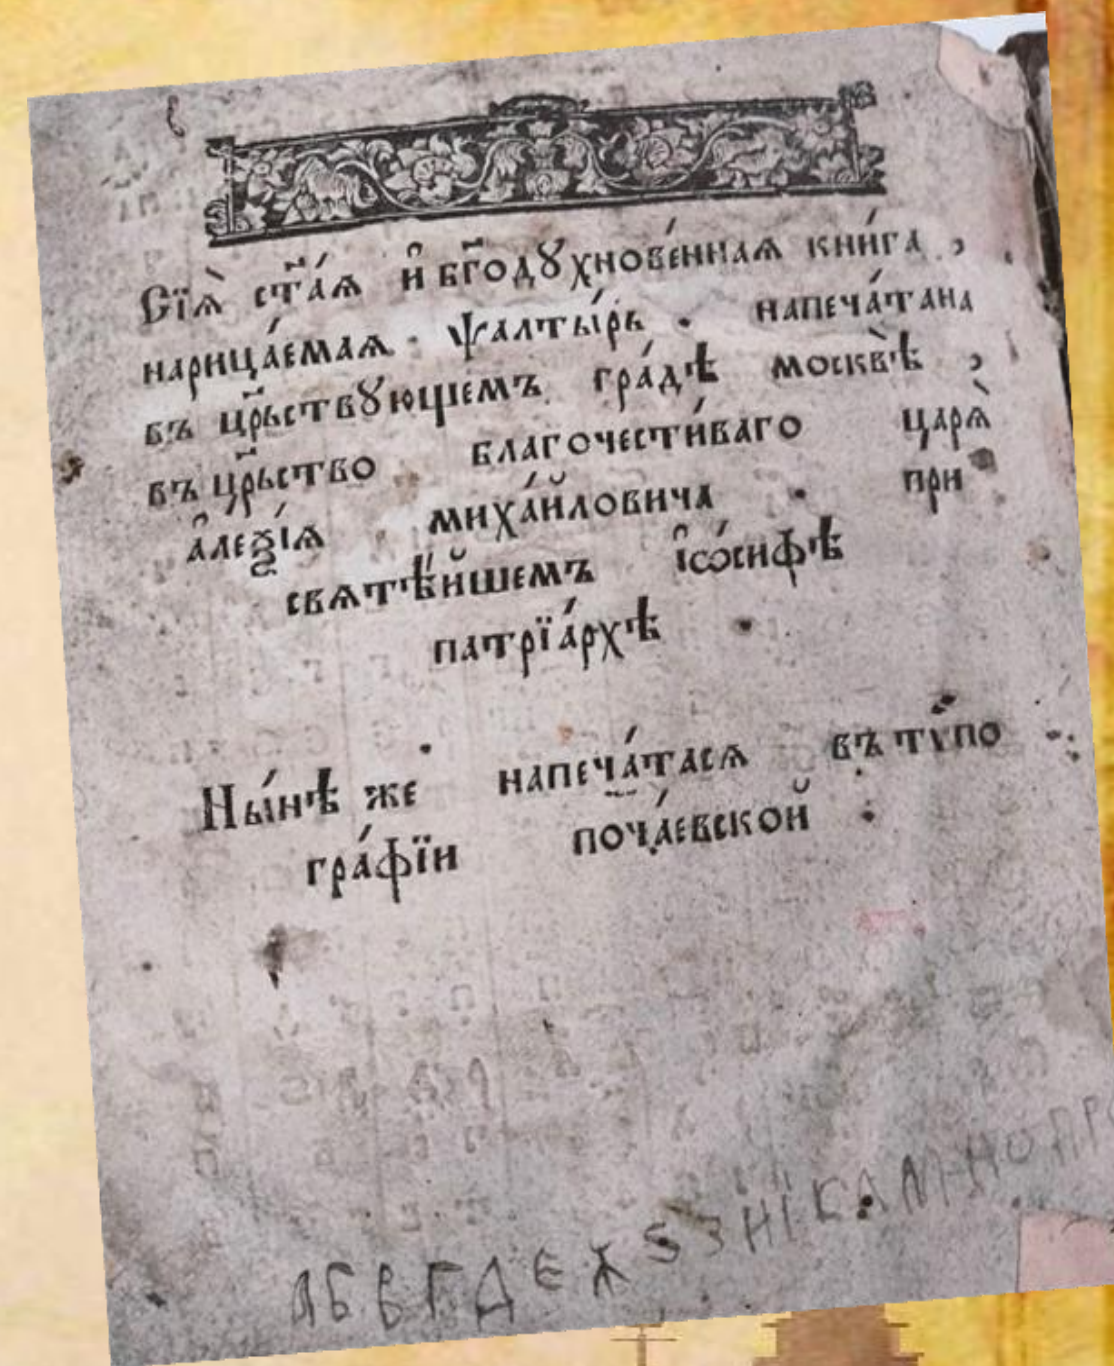 Сїѧ̀ ст҃а́ѧ и҆ бг҃одꙋхнове́ннаѧ кни́га ,
нарица́емаѧ . ѱалты́рь . напеча́тана
въ цр҃ьствꙋющемъ гра́дѣ москвѣ̀ ,
въ цр҃ьство благочести́ваго царѧ̀
а҆леѯі́ѧ миха́йловича . при
свѧтѣ́йшемъ і҆ѡ́сифѣ
патрїа́рхѣ .
Ны́нѣ же напеча́тасѧ въ тѵпо
гра́фїи поча́евской .
А Б В Г Д Е Ж Ѕ З И І К Л М Н О П Р